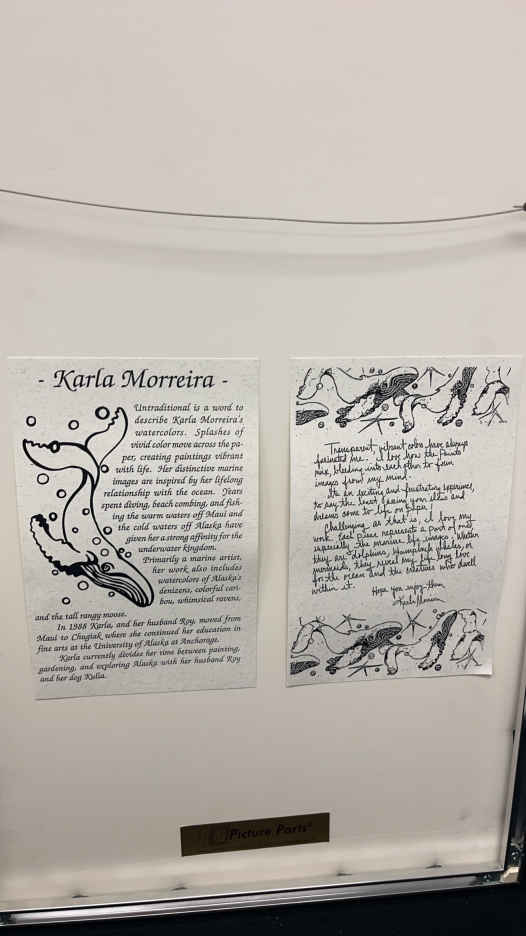 - Karla Morreira -
Untraditional is a word to
describe Karla Morreira's
watercolors. Splashes of
vivid color move across the pa-
per, creating paintings vibrant
with life. Her distinctive marine
images are inspired by her lifelong
relationship with the ocean. Years
spent diving, beach combing, and fish-
ing the warm waters off Maui and
the cold waters off Alaska have
given her a strong affinity for the
underwater kingdom.
Primarily a marine artist,
her work also includes
watercolors of Alaska's
denizens, colorful cari-
bou, whimsical ravens,
and the tall rangy moose.
In 1988 Karla, and her husband Roy, moved from
Maui to Chugiak, where she continued her education in
fine arts at the University of Alaska at Anchorage.
Karla currently divides her time between painting,
gardening, and exploring Alaska with her husband Roy
and her dog Kulla.
Transparent, vibrant colors have always
fascinated me. I love how the paints
mix, bleeding into each other to form
images from my mind.
Its an exciting and frustrating experience,
to say the least, seeing your ideas and
dreams come to life on paper!
Challenging as that is, I love my
work. Each piece represents a part of me,
especially the marine life images. Whether
they are dolphins, humpback whales, or
mermaids, they reveal my life long love
for the ocean and the creatures who dwell
within it.
Hope you enjoy them,
Karla Morreira
Picture Parts